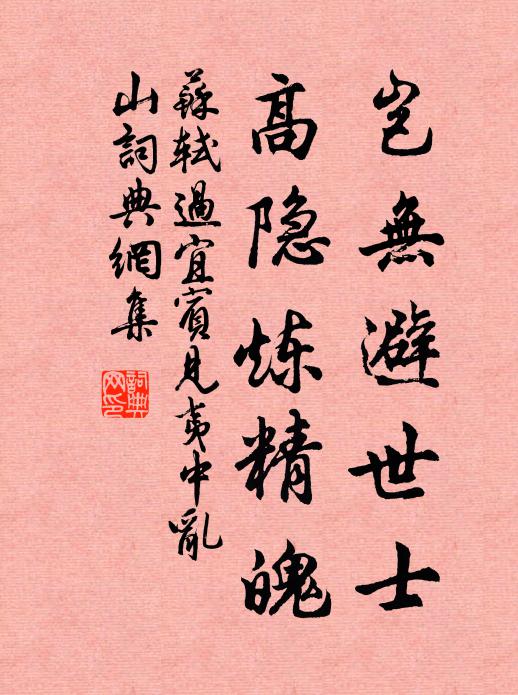 岂無避世士
高隐炼精魄
蘇轼過宜賓見夷中亂
山詞典網集
詞典
网印